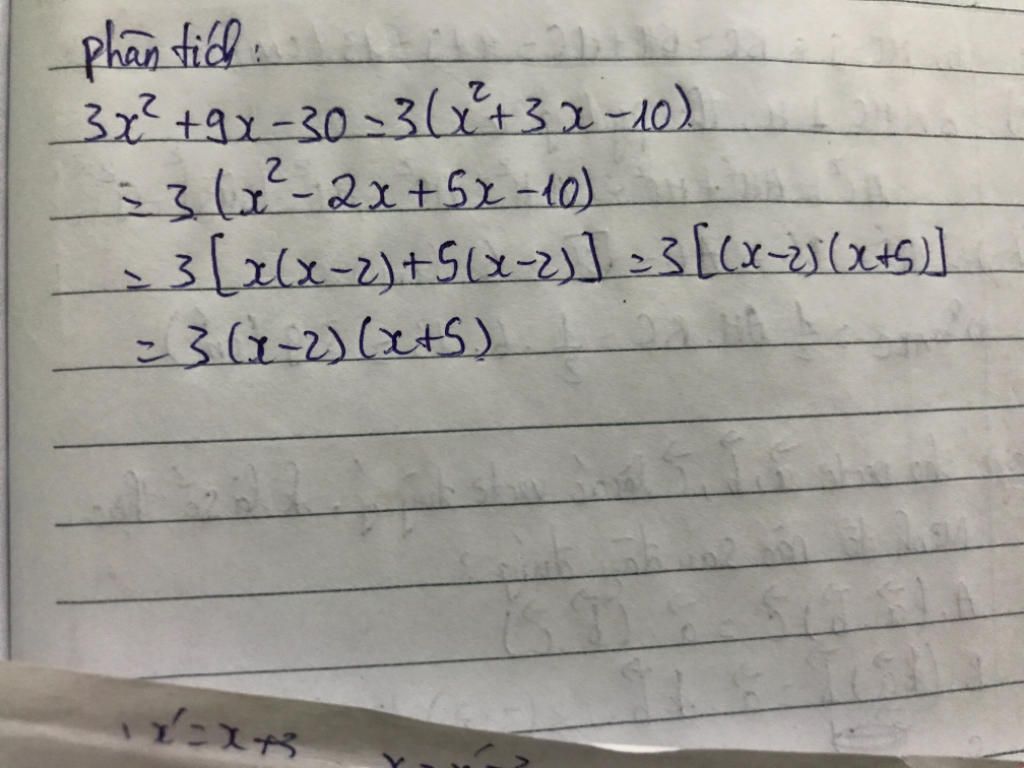 phân tích:
3x² + 9x - 30 = 3(x² + 3x - 10)
= 3(x² - 2x + 5x - 10)
= 3[x(x-2) + 5(x-2)] = 3[(x-2)(x+5)]
= 3(x-2)(x+5)
x' = x + 3